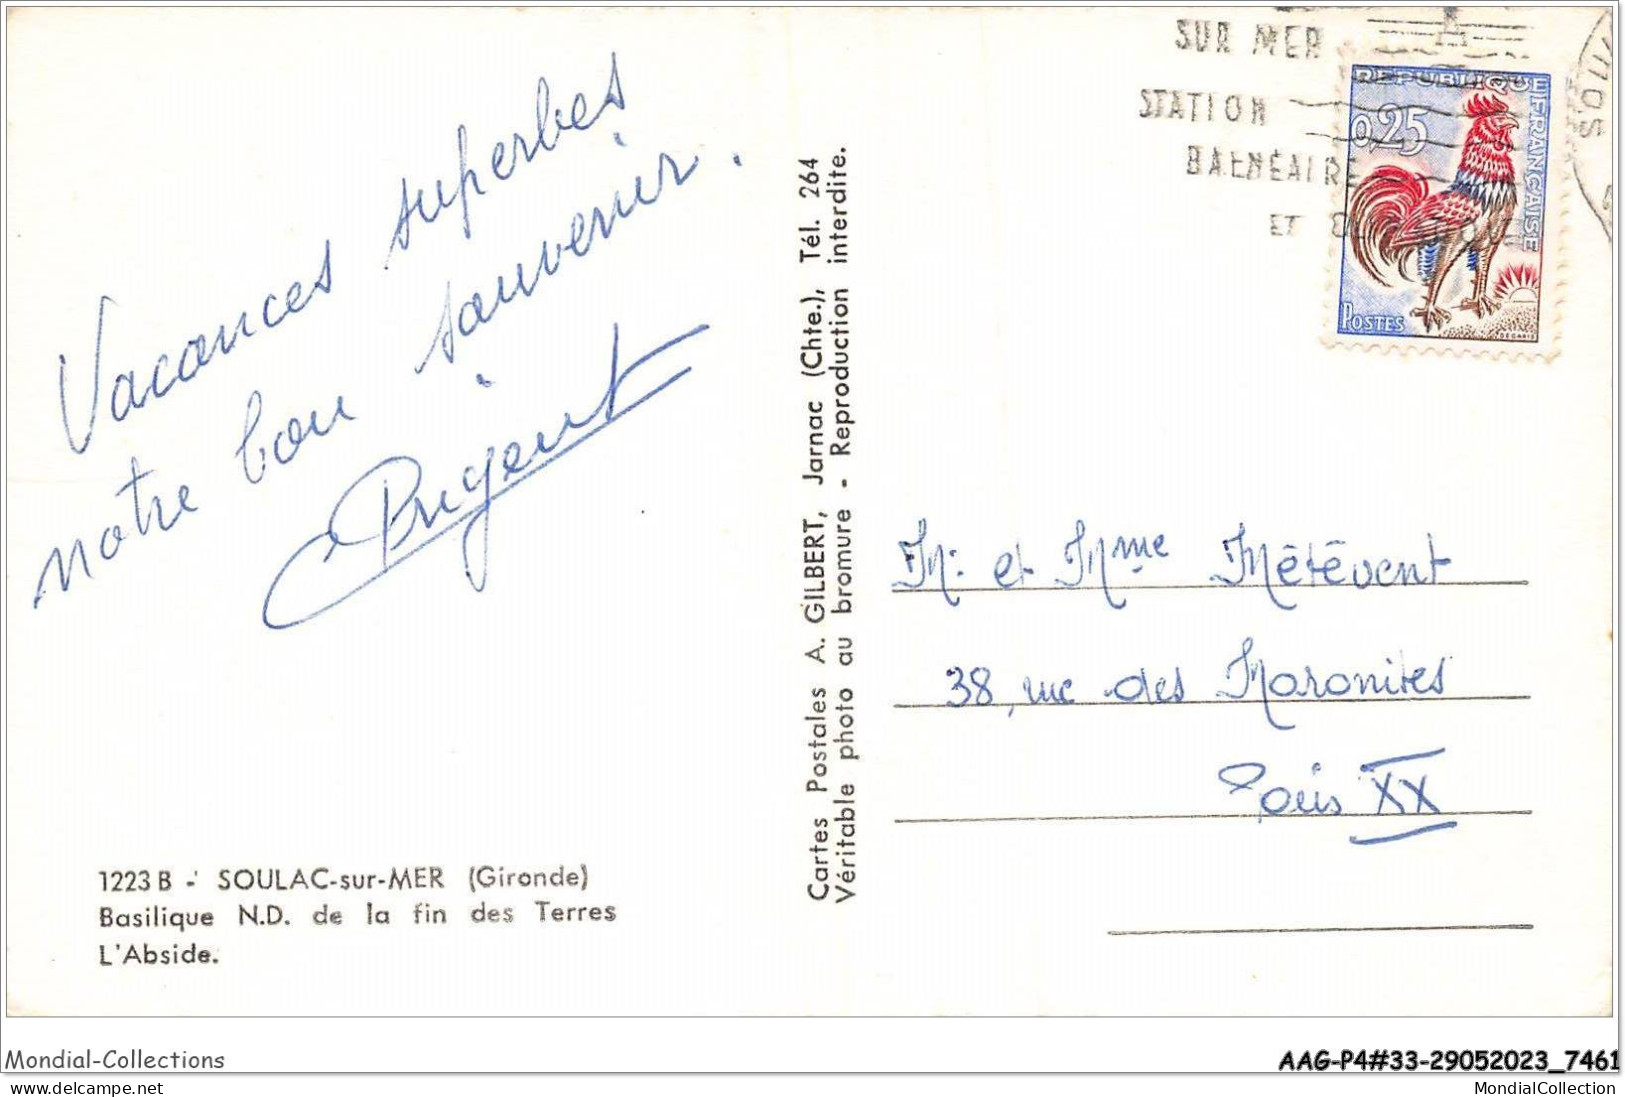 Vacances superbes
notre bon souvenir.
Prigent
1223 B - SOULAC-sur-MER (Gironde)
Basilique N.D. de la fin des Terres
L'Abside.
Cartes Postales A. GILBERT, Jarnac (Chte.), Tél. 264
Véritable photo au bromure - Reproduction interdite.
SUR MER
STATION
BALNÉAIRE
ET
REPUBLIQUE FRANÇAISE
0,25
POSTES
DECARIS
M. et Mme Métévent
38, rue des Maronites
Paris XX
Mondial-Collections
AAG-P4#33-29052023_7461
delcampe.net
MondialCollection